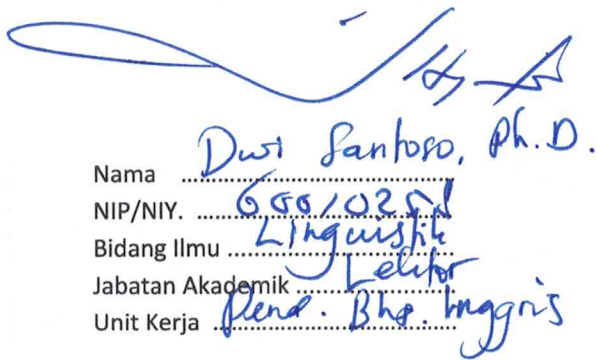 Nama Dwi Santoso, Ph.D.
NIP/NIY.
Bidang Ilmu Linguistik
Jabatan Akademik Lektor
Unit Kerja Pend. Bhs. Inggris